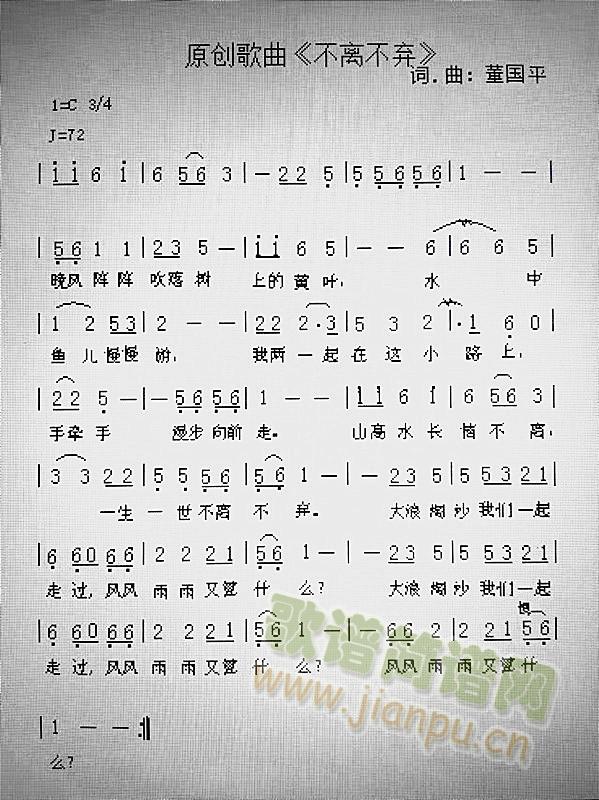 原创歌曲《不离不弃》
词.曲: 董国平
1=C 3/4
J=72
|i i 6 i|6 5 6 3|－2 2 5|5 6 5 6 5|1 － －|
|5 6 1 1|2 3 5 －|i i 6 5|－ － 6|6 6 5|
晚风 阵 阵 吹落 树 上的 黄 叶, 水 中
|1 2 5 3|2 － －|2 2 2·3|5 3 2|·1 6 0|
鱼 儿 慢慢 游, 我两 一起 在 这 小 路 上,
|2 2 5 －|－5 6 5 6|1 － －|i i 6 i|6 5 6 3|
手牵 手 漫步 向前 走。 山高 水 长 情 不 离,
|3 3 2 2|5 5 5 6|5 6 1 －|－2 3 5|5 5 3 2 1|
一生 一 世 不离 不 弃。 大浪 淘 沙 我们 一起
|6 6 0 6 6|2 2 2 1|5 6 1－|－2 3 5|5 5 3 2 1|
走 过, 风风 雨 雨 又算 什 么? 大浪 淘 沙 我们 一起
|6 6 0 6 6|2 2 2 1|5 6 1 －|－6 6 2|2 2 1 5 6|
走 过, 风风 雨 雨 又算 什 么? 风风 雨 雨 又算 什
|1 － －:‖
么?
歌谱简谱网
www.jianpu.cn